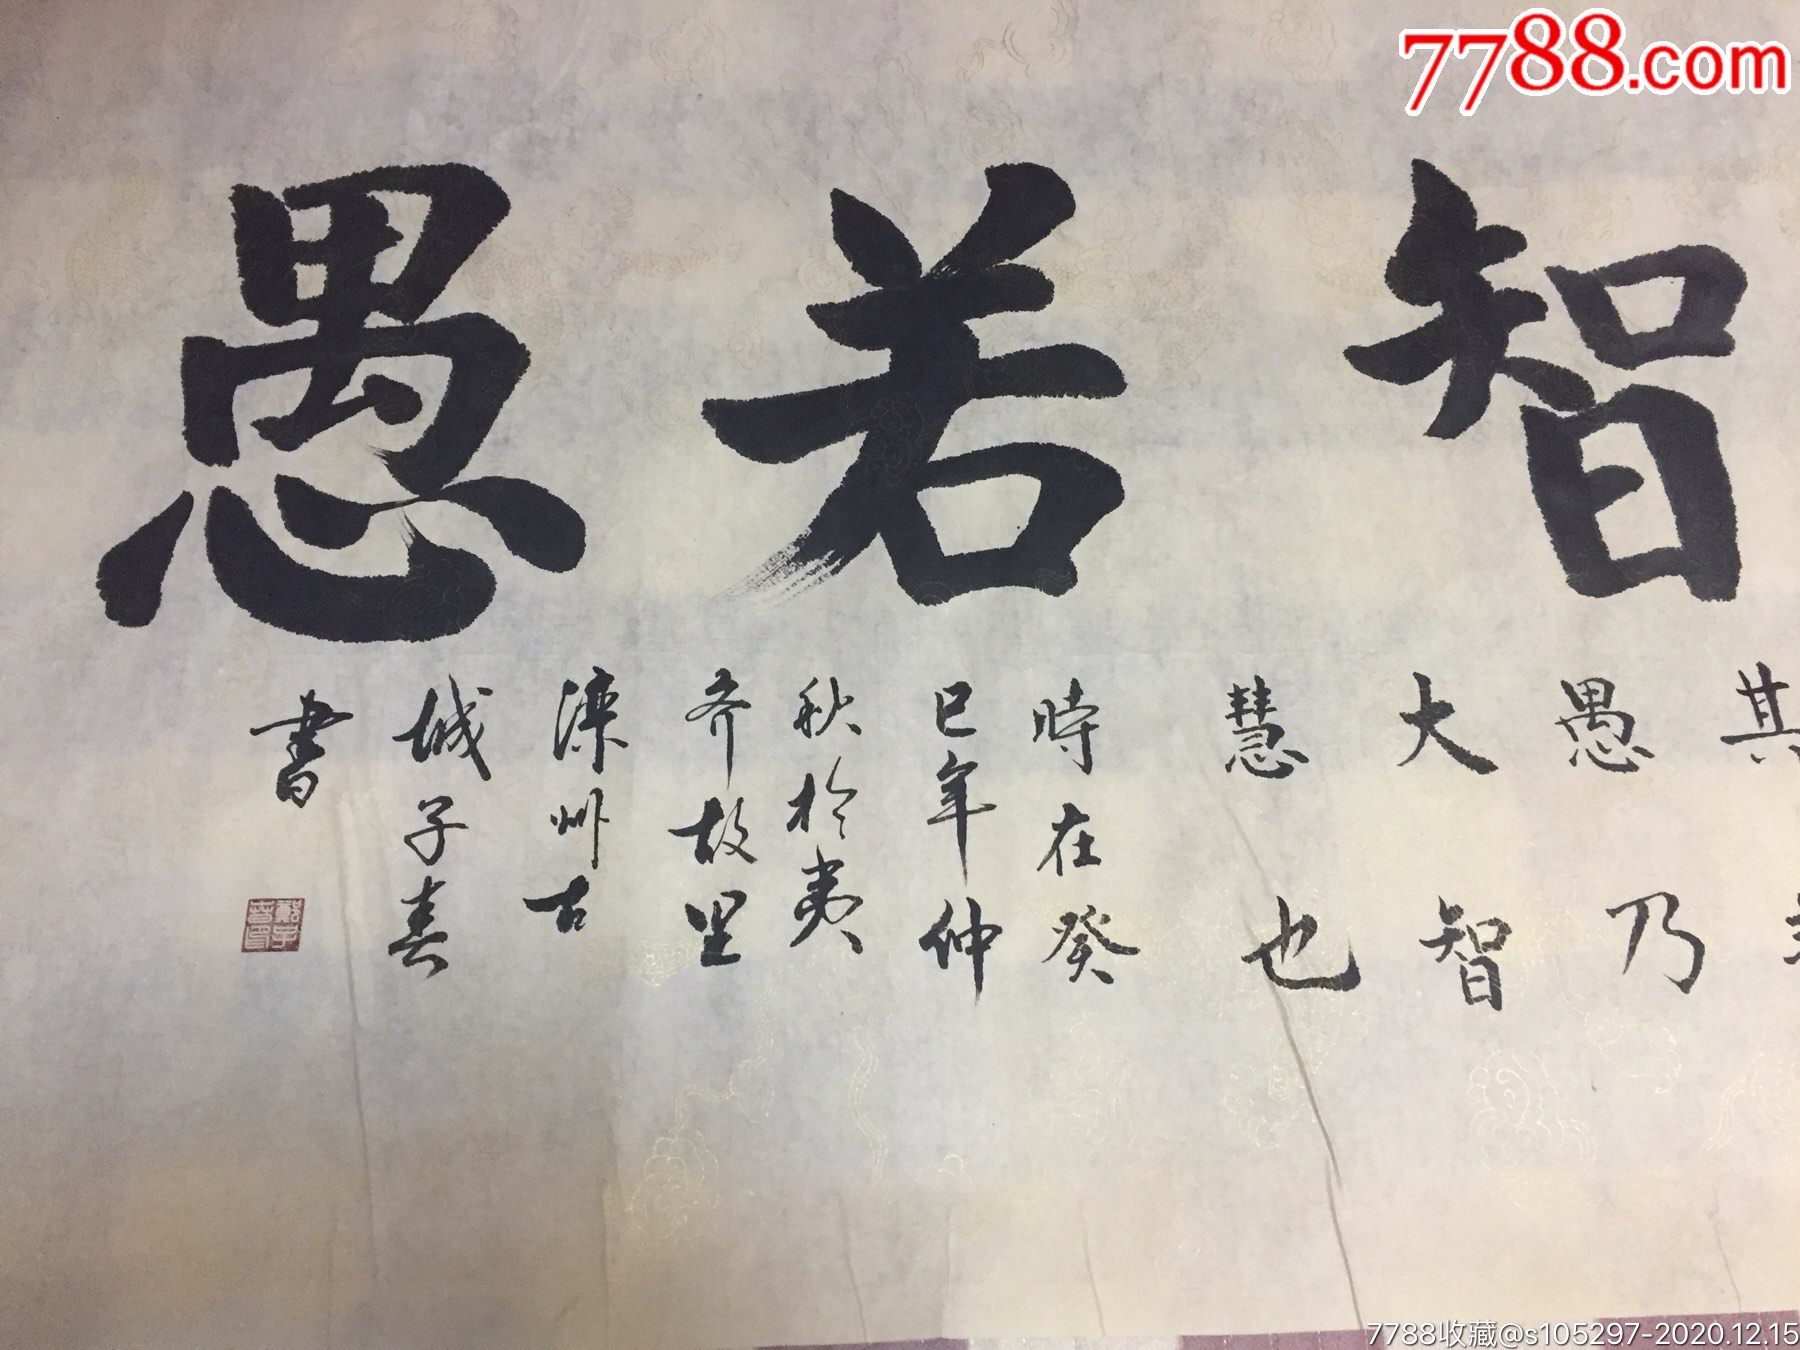 7788.com
智若愚
其
愚乃
大智
慧也
時在癸
巳年仲
秋於夷
齐故里
滦州古
城子春
書
7788收藏@s105297-2020.12.15